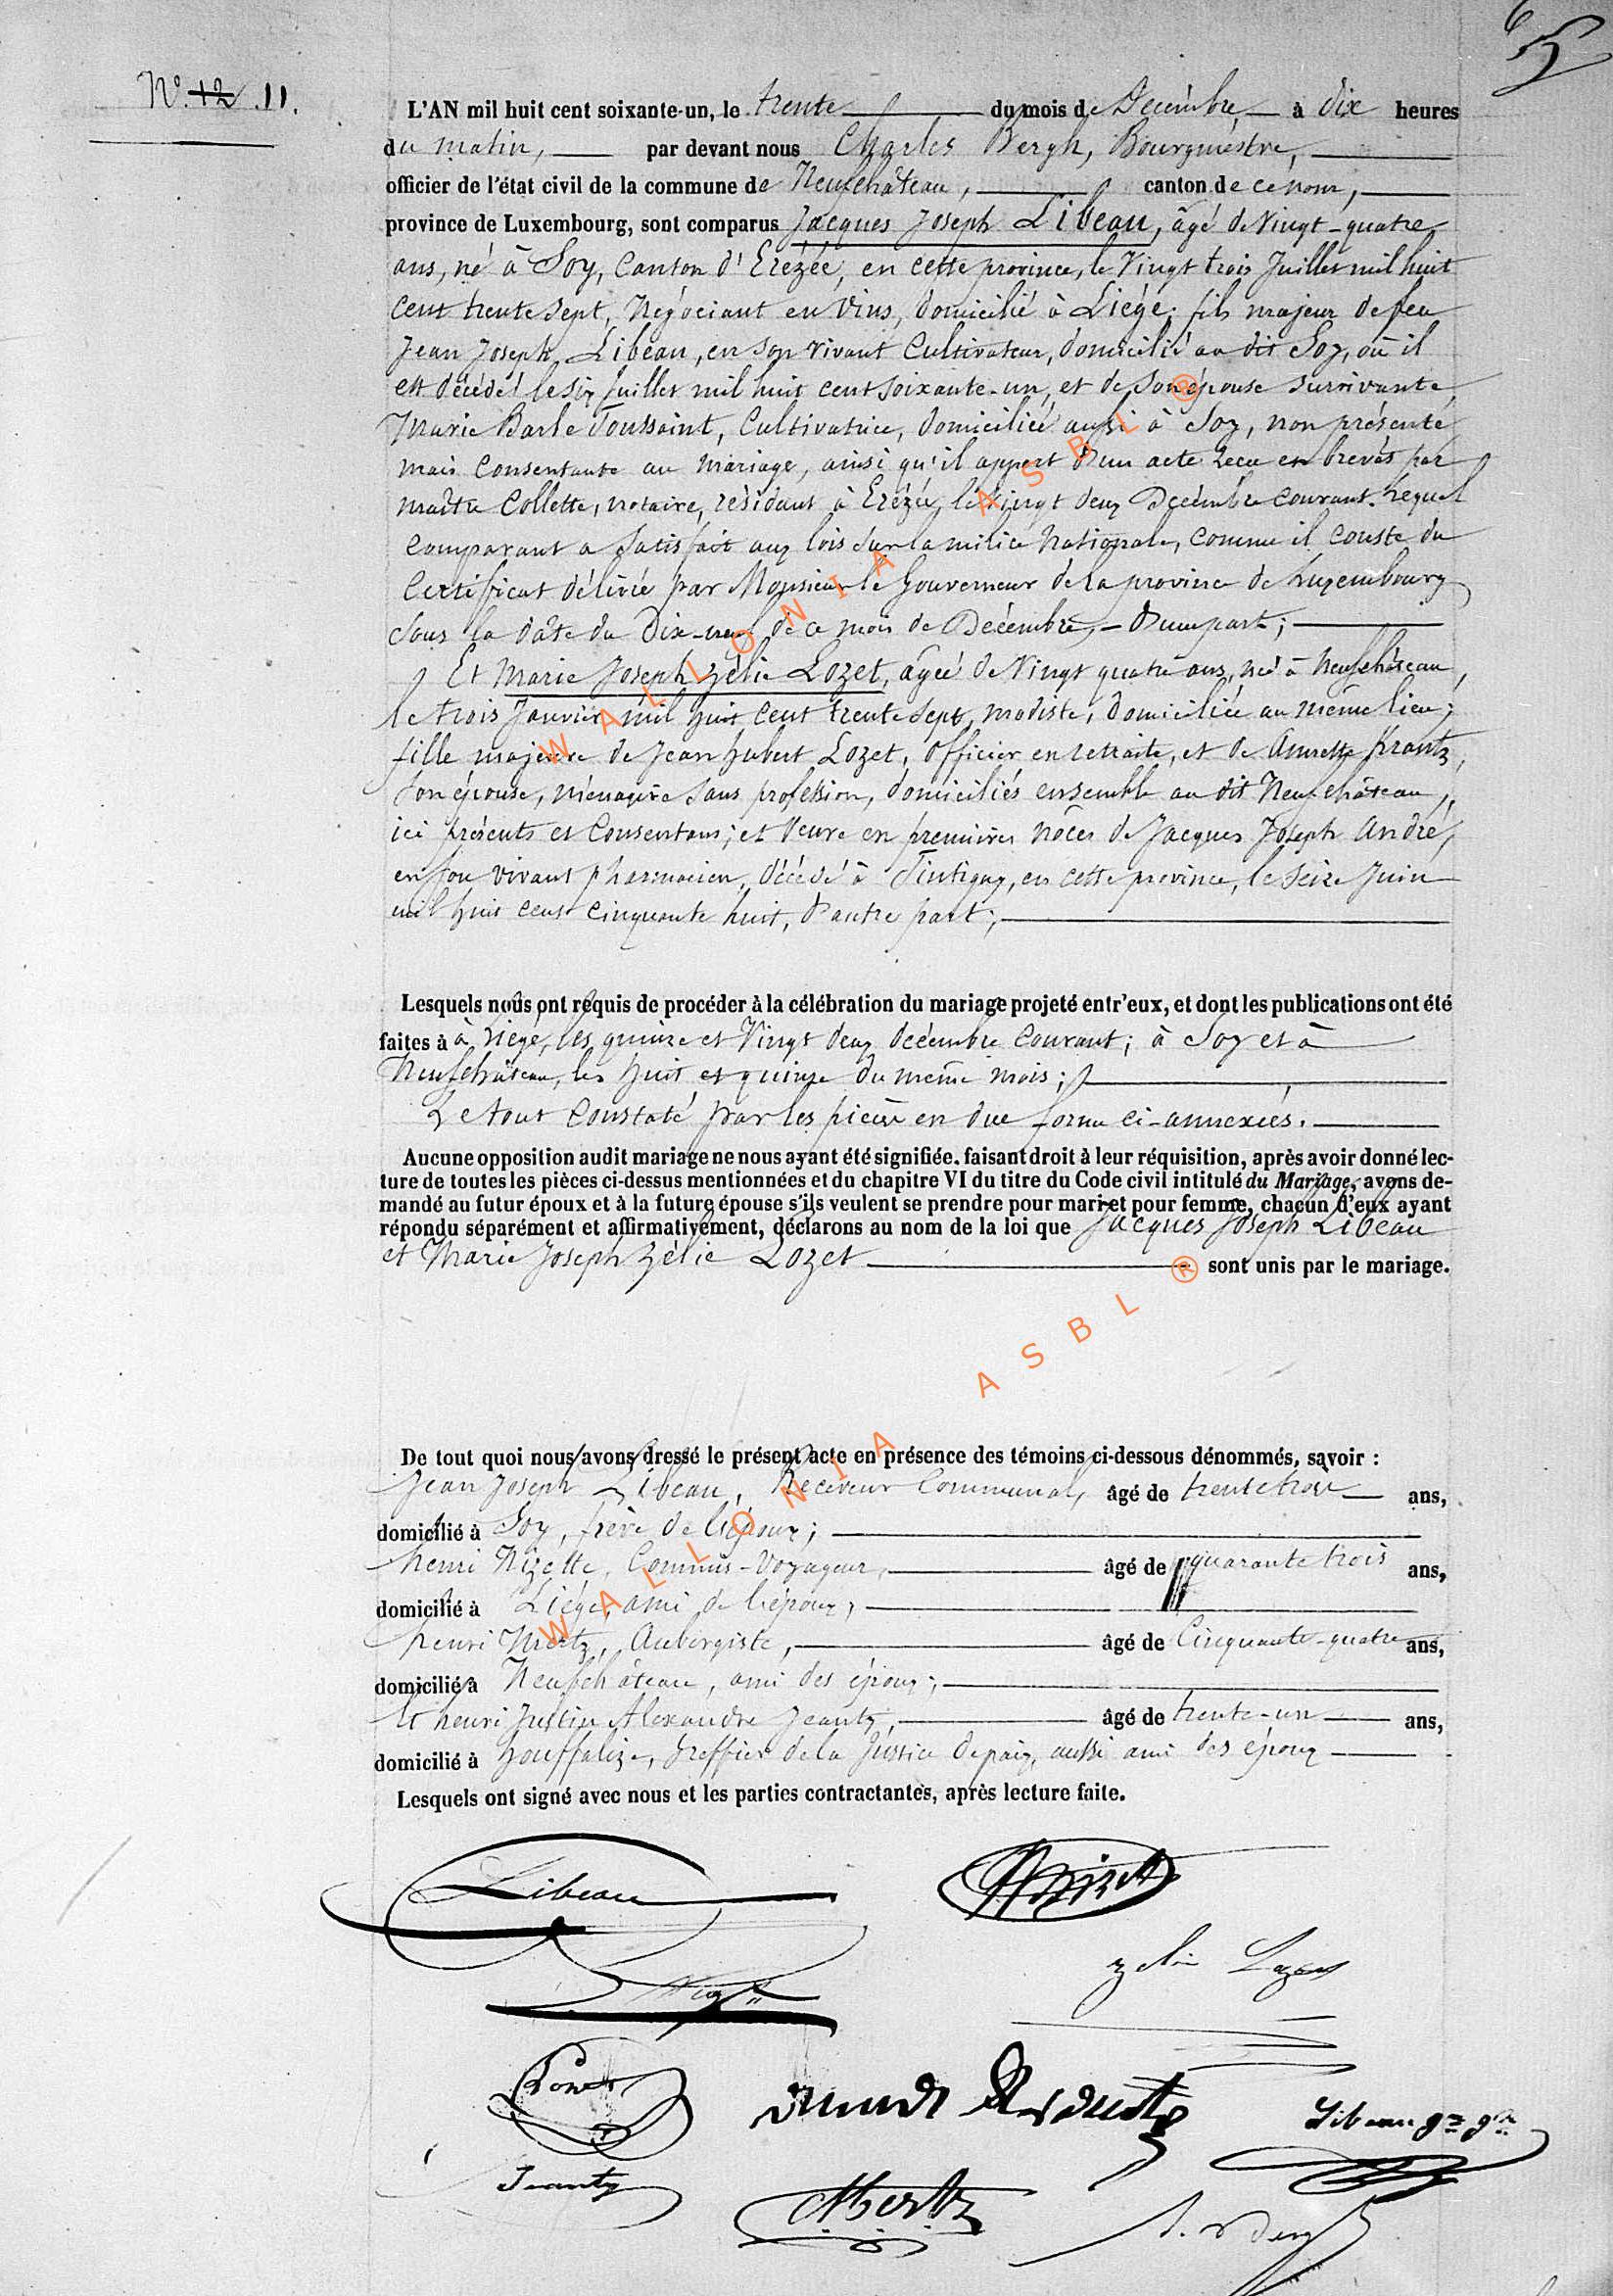 6
5
N° 12 . 11.
L'AN mil huit cent soixante-un, le trente du mois de Décembre à dix heures
du matin, par devant nous Charles Bergh, Bourgmestre,
officier de l'état civil de la commune de Neufchâteau, canton de ce nom,
province de Luxembourg, sont comparus Jacques Joseph Libeau, âgé de Vingt-quatre
ans, né à Soy, Canton d'Erezée, en cette province, le Vingt trois Juillet mil huit
cent trente sept, Négociant en Vins, domicilié à Liége; fils majeur de feu
Jean Joseph Libeau, en son vivant Cultivateur, domicilié au dit Soy, où il
est décédé le six Juillet mil huit cent soixante-un, et de son épouse survivante
Marie Barbe Toussaint, Cultivatrice, domiciliée aussi à Soy, non présente
mais Consentante au Mariage, ainsi qu'il appert d'un acte recu en brevet par
maître Collette, notaire, résidant à Erézée, le Vingt deux Décembre courant. Lequel
Comparant a Satisfait aux lois sur la milice Nationale, comme il conste du
Certificat délivré par Monsieur le Gouverneur de la province de Luxembourg
sous la date du Dix-neuf de ce mois de Décembre, - D'une part;
Et Marie Joseph Zélie Lozet, âgée de Vingt quatre ans, née à Neufchâteau,
le trois Janvier mil huit cent trente sept, modiste, domiciliée au même lieu;
fille majeure de Jean hubert Lozet, Officier en retraite, et de Annette Krantz,
son épouse, ménagère sans profession, domiciliés ensemble au dit Neufchâteau,
ici présents et Consentans; et Veuve en premières nôces de Jacques Joseph André,
en son vivant pharmacien, décédé à Tintigny, en cette province, le seize Juin
mil huit cent cinquante huit, D'autre part;
Lesquels nous ont requis de procéder à la célébration du mariage projeté entr'eux, et dont les publications ont été
faites à à Liége, les quinze et Vingt deux décembre courant; à Soy et à
Neufchâteau, les huit et quinze du même mois;
Le tout Constaté par les pièces en due forme ci-annexées.
Aucune opposition audit mariage ne nous ayant été signifiée, faisant droit à leur réquisition, après avoir donné lec-
ture de toutes les pièces ci-dessus mentionnées et du chapitre VI du titre du Code civil intitulé du Mariage, avons de-
mandé au futur époux et à la future épouse s'ils veulent se prendre pour mari et pour femme, chacun d'eux ayant
répondu séparément et affirmativement, déclarons au nom de la loi que Jacques Joseph Libeau
et Marie Joseph Zélie Lozet sont unis par le mariage.
De tout quoi nous avons dressé le présent acte en présence des témoins ci-dessous dénommés, savoir :
Jean Joseph Libeau, Receveur Communal, âgé de trente trois ans,
domicilié à Soy, frère de l'époux;
henri Nizette, Commis-Voyageur, âgé de quarante trois ans,
domicilié à Liége, ami de l'époux,
henri Mertz, Aubergiste, âgé de Cinquante-quatre ans,
domicilié à Neufchâteau, ami des époux;
Et henri Justin Alexandre Jeanty, âgé de trente-un ans,
domicilié à houffalize, Greffier de la Justice de paix, aussi ami des époux
Lesquels ont signé avec nous et les parties contractantes, après lecture faite.
Libeau
Zelie Lozet
Lozet
Libeau
Jeanty
Mertz
WALLONIA ASBL ®
WALLONIA ASBL ®